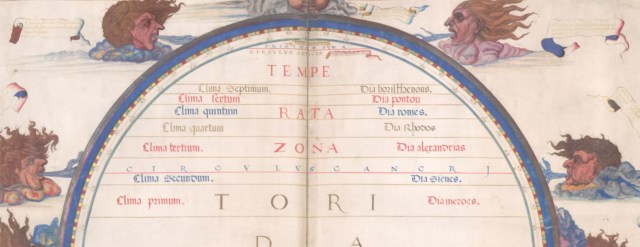 TEMPE
Clima Septimum. Dia boristhenous.
Clima sextum Dia pontou
RATA
Clima quintum Dia romes.
Clima quartum Dia Rhodos
ZONA
Clima tertium. Dia alexandrias
CIRCVLVS CANCRJ
Clima Secundum. Dia Sienes.
TORI
Clima primum. Dia meroes.
D A